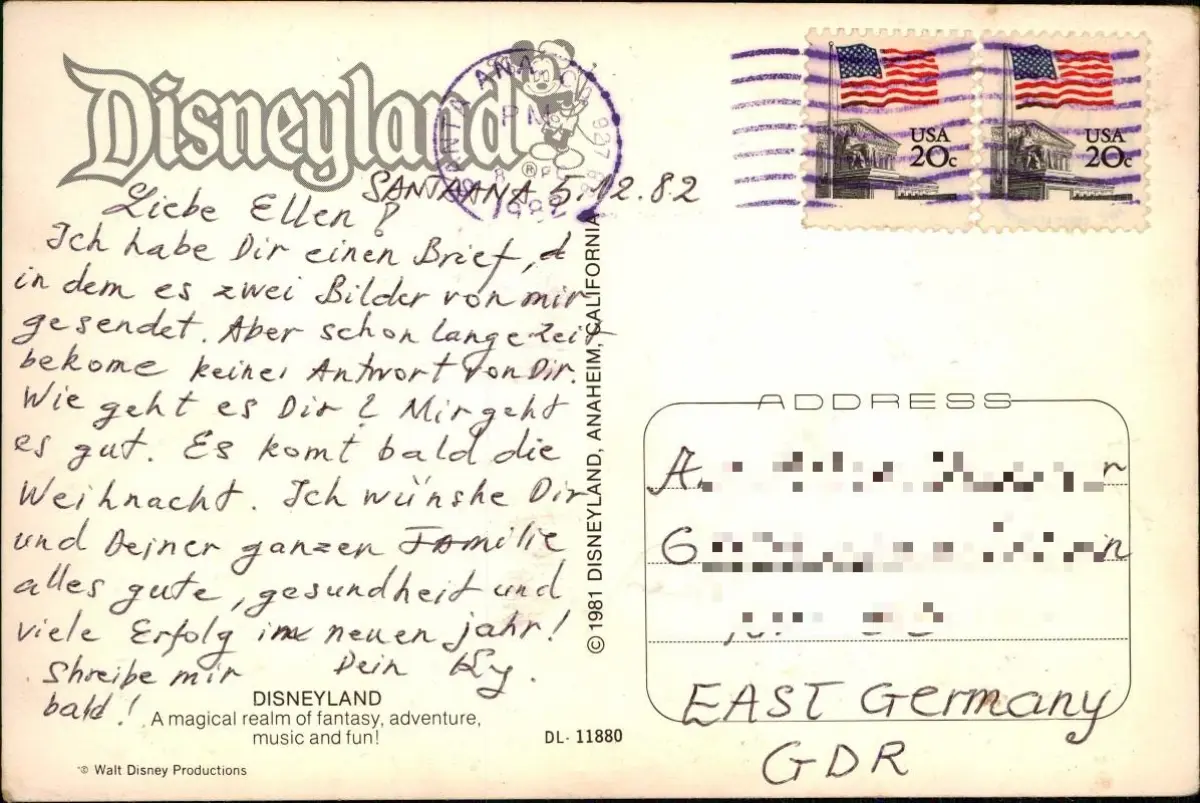 Disneyland
®
SANTA ANA
PM
1982
927
SANTAANA 5.12.82
Liebe Ellen!
Ich habe Dir einen Brief,
in dem es zwei Bilder von mir
gesendet. Aber schon lange Zeit
bekome keiner Antwort von Dir.
Wie geht es Dir? Mir geht
es gut. Es komt bald die
Weihnacht. Ich wünshe Dir
und Deiner ganzen Familie
alles gute, gesundheit und
viele Erfolg im neuen jahr!
Shreibe mir Dein
bald!
DISNEYLAND
A magical realm of fantasy, adventure,
music and fun!
© Walt Disney Productions
DL-11880
© 1981 DISNEYLAND, ANAHEIM, CALIFORNIA
USA
20c
USA
20c
ADDRESS
A.
G
EAST Germany
GDR